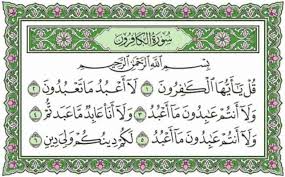 سُورَةُ الْكَافِرُونَ
بِسْمِ اللَّهِ الرَّحْمَٰنِ الرَّحِيمِ
قُلْ يَٰٓأَيُّهَا ٱلْكَٰفِرُونَ ١ لَآ أَعْبُدُ مَا تَعْبُدُونَ ٢
وَلَآ أَنتُمْ عَٰبِدُونَ مَآ أَعْبُدُ ٣ وَلَآ أَنَا۠ عَابِدٌ مَّا عَبَدتُّمْ ٤
وَلَآ أَنتُمْ عَٰبِدُونَ مَآ أَعْبُدُ ٥ لَكُمْ دِينُكُمْ وَلِيَ دِينِ ٦